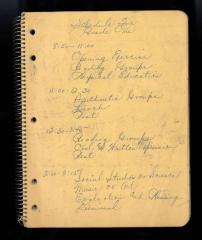 Schedule For
Grade
8:50-11:00
Opening Exercise
Reading Groups
Physical Education
11:00-12:30
Arithmetic Groups
Lunch
Rest
12:30-2:00
Reading Groups
Oral & Written
Rest
2:00-3:15
Social Studies or Science
Music or Art
Evaluation and Planning
Dismissal